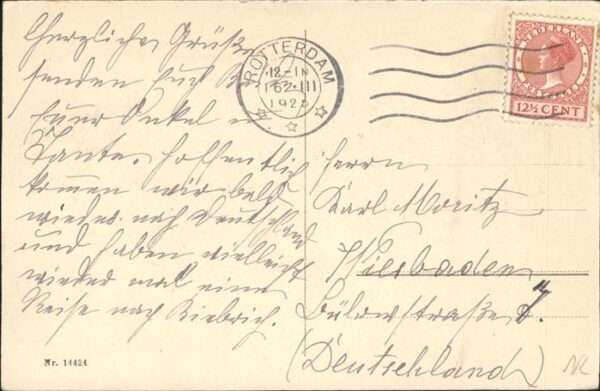 Herzliche Grüße
senden Euch
Euer Onkel u.
Tante. Hoffentlich
kommen wir bald
wieder nach Deutschland
und haben vielleicht
wieder mal eine
Reise nach Biebrich.
Nr. 14424
ROTTERDAM
12-1N
III
192
NEDERLAND
12½ CENT
Herrn
Karl Moritz
Wiesbaden
Bülowstraße 7.
(Deutschland)